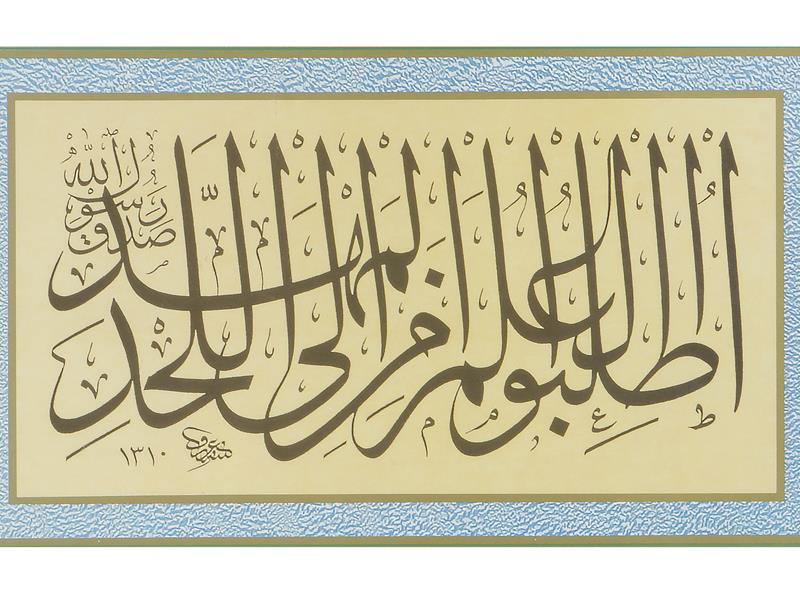 اُطْلُبُوا الْعِلْمَ مِنَ الْمَهْدِ اِلَى اللَّحْدِ
صَدَقَ رَسُولُ اللّٰه
١٣١٠